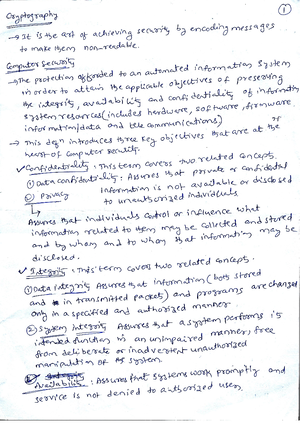 ①
Cryptography
→ It is the art of achieving security by encoding messages
to make them non-readable.
Computer Security
→ The protection afforded to an automated information system
in order to attain the applicable objectives of preserving
the integrity, availability and confidentiality of information
system resources (includes hardware, software, firmware
information/data and telecommunications)
→ This defn introduces three key objectives that are at the
heart of computer security.
✓ Confidentiality: This term covers two related concepts
① Data confidentiality: Assures that private or confidential
information is not available or disclosed
to unauthorized individuals
② Privacy
Assures that individuals control or influence what
information related to them may be collected and stored
and by whom and to whom that information may be
disclosed.
✓ Integrity: This term covers two related concepts.
① Data integrity Assures that information (both stored
and in transmitted packets) and programs are changed
only in a specified and authorized manner.
② System Integrity Assures that a system performs its
intended function in an unimpaired manner, free
from deliberate or inadvertent unauthorized
manipulation of the system.
Availability: Assures that systems work promptly and
service is not denied to authorized users.